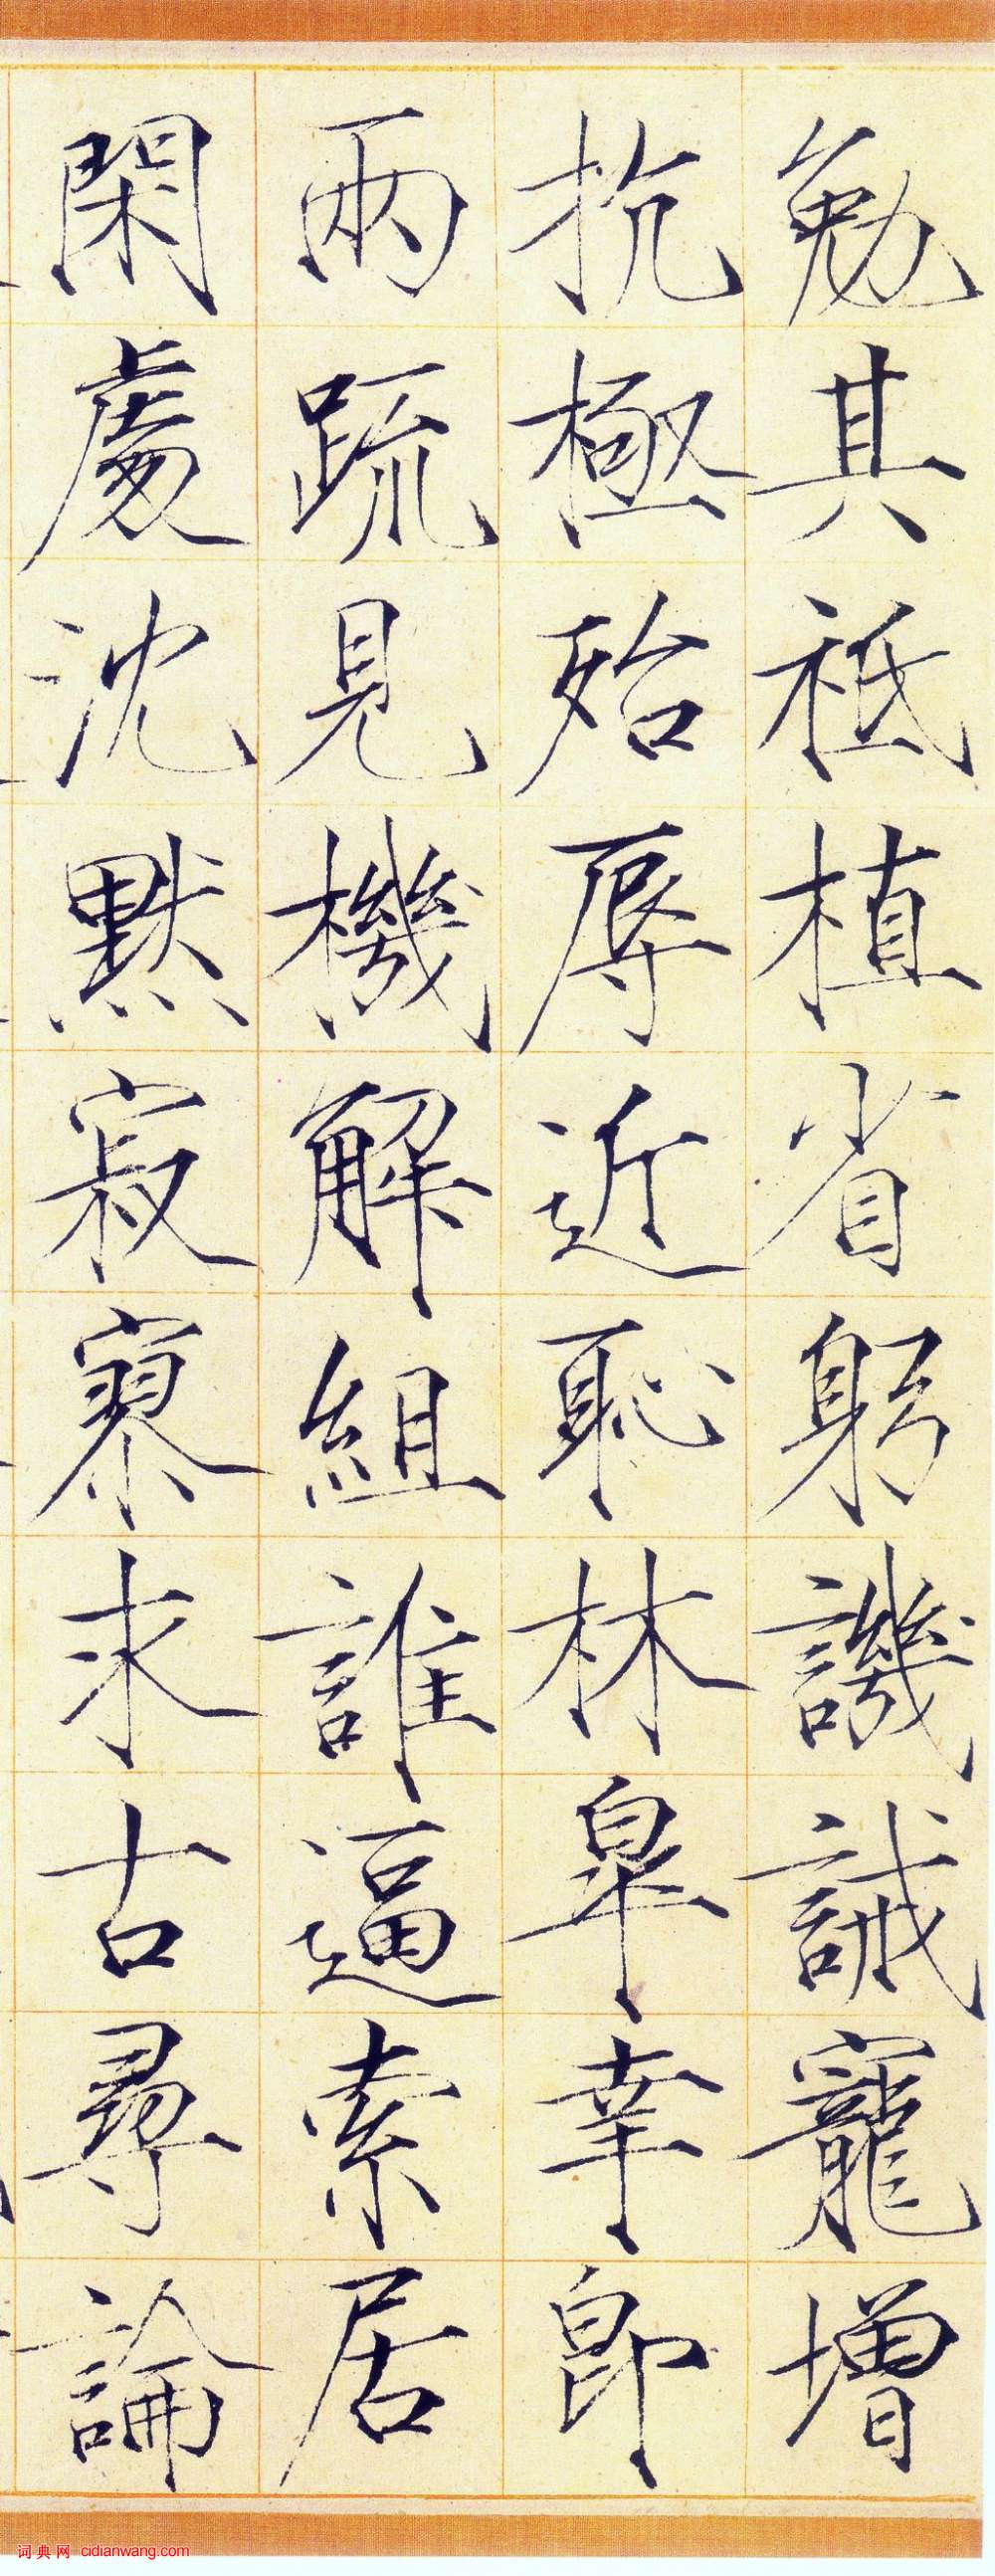 勉其祗植省躬譏誡寵增
抗極殆辱近恥林皋幸即
兩疏見機解組誰逼索居
閑處沈默寂寥求古尋論
词典网 cidianwang.com